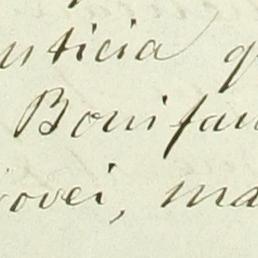 usticia q
Bonifau
ovei, ma